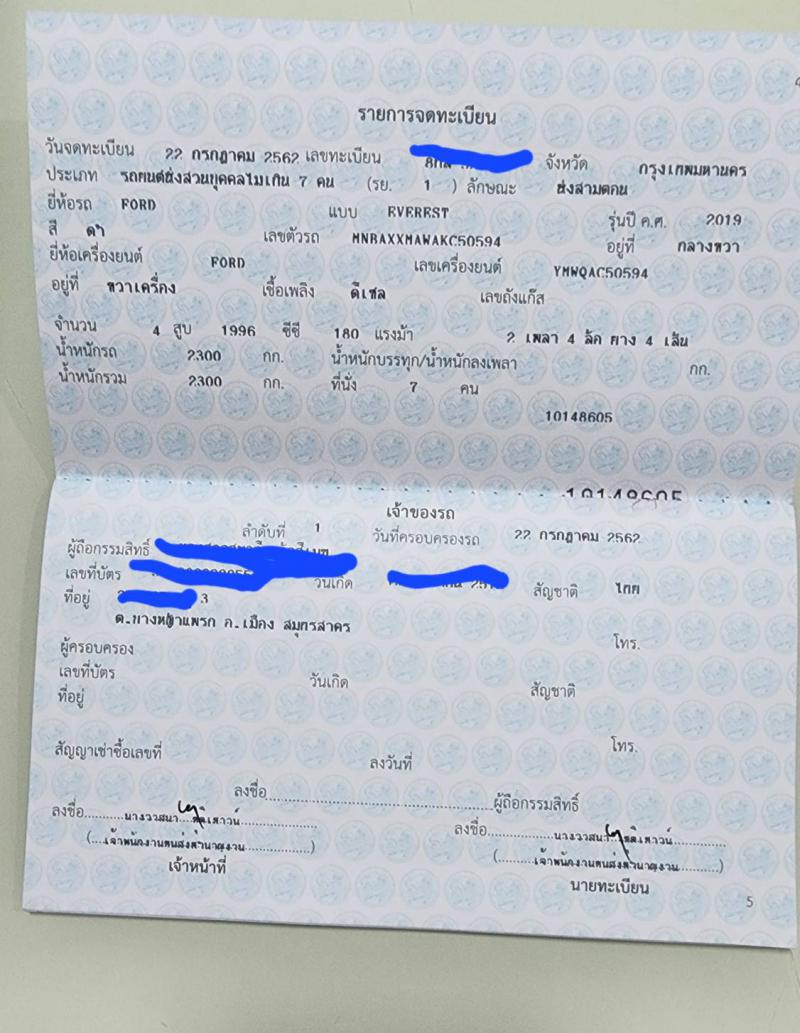 รายการจดทะเบียน
วันจดทะเบียน 22 กรกฎาคม 2562 เลขทะเบียน จังหวัด กรุงเทพมหานคร
ประเภท รถยนต์นั่งส่วนบุคคลไม่เกิน 7 คน (รย. 1 ) ลักษณะ นั่งสามตอน
ยี่ห้อรถ FORD แบบ EVEREST รุ่นปี ค.ศ. 2019
สี ดำ เลขตัวรถ MNBAXXMAWAKC50594 อยู่ที่ กลางขวา
ยี่ห้อเครื่องยนต์ FORD เลขเครื่องยนต์ YMWQAC50594
อยู่ที่ ขวาเครื่อง เชื้อเพลิง ดีเซล เลขถังแก๊ส
จำนวน 4 สูบ 1996 ซีซี 180 แรงม้า 2 เพลา 4 ล้อ ยาง 4 เส้น
น้ำหนักรถ 2300 กก. น้ำหนักบรรทุก/น้ำหนักลงเพลา กก.
น้ำหนักรวม 2300 กก. ที่นั่ง 7 คน
10148605
10148605
เจ้าของรถ
ลำดับที่ 1 วันที่ครอบครองรถ 22 กรกฎาคม 2562
ผู้ถือกรรมสิทธิ์
เลขที่บัตร วันเกิด สัญชาติ ไทย
ที่อยู่ 3
ต.บางหญ้าแพรก อ.เมือง สมุทรสาคร
ผู้ครอบครอง โทร.
เลขที่บัตร วันเกิด สัญชาติ
ที่อยู่
สัญญาเช่าซื้อเลขที่ ลงวันที่ โทร.
ลงชื่อ ผู้ถือกรรมสิทธิ์
ลงชื่อ นางวาสนา ลงชื่อ นางวาสนา
(เจ้าพนักงานขนส่งชำนาญงาน) (เจ้าพนักงานขนส่งชำนาญงาน)
เจ้าหน้าที่ นายทะเบียน
5